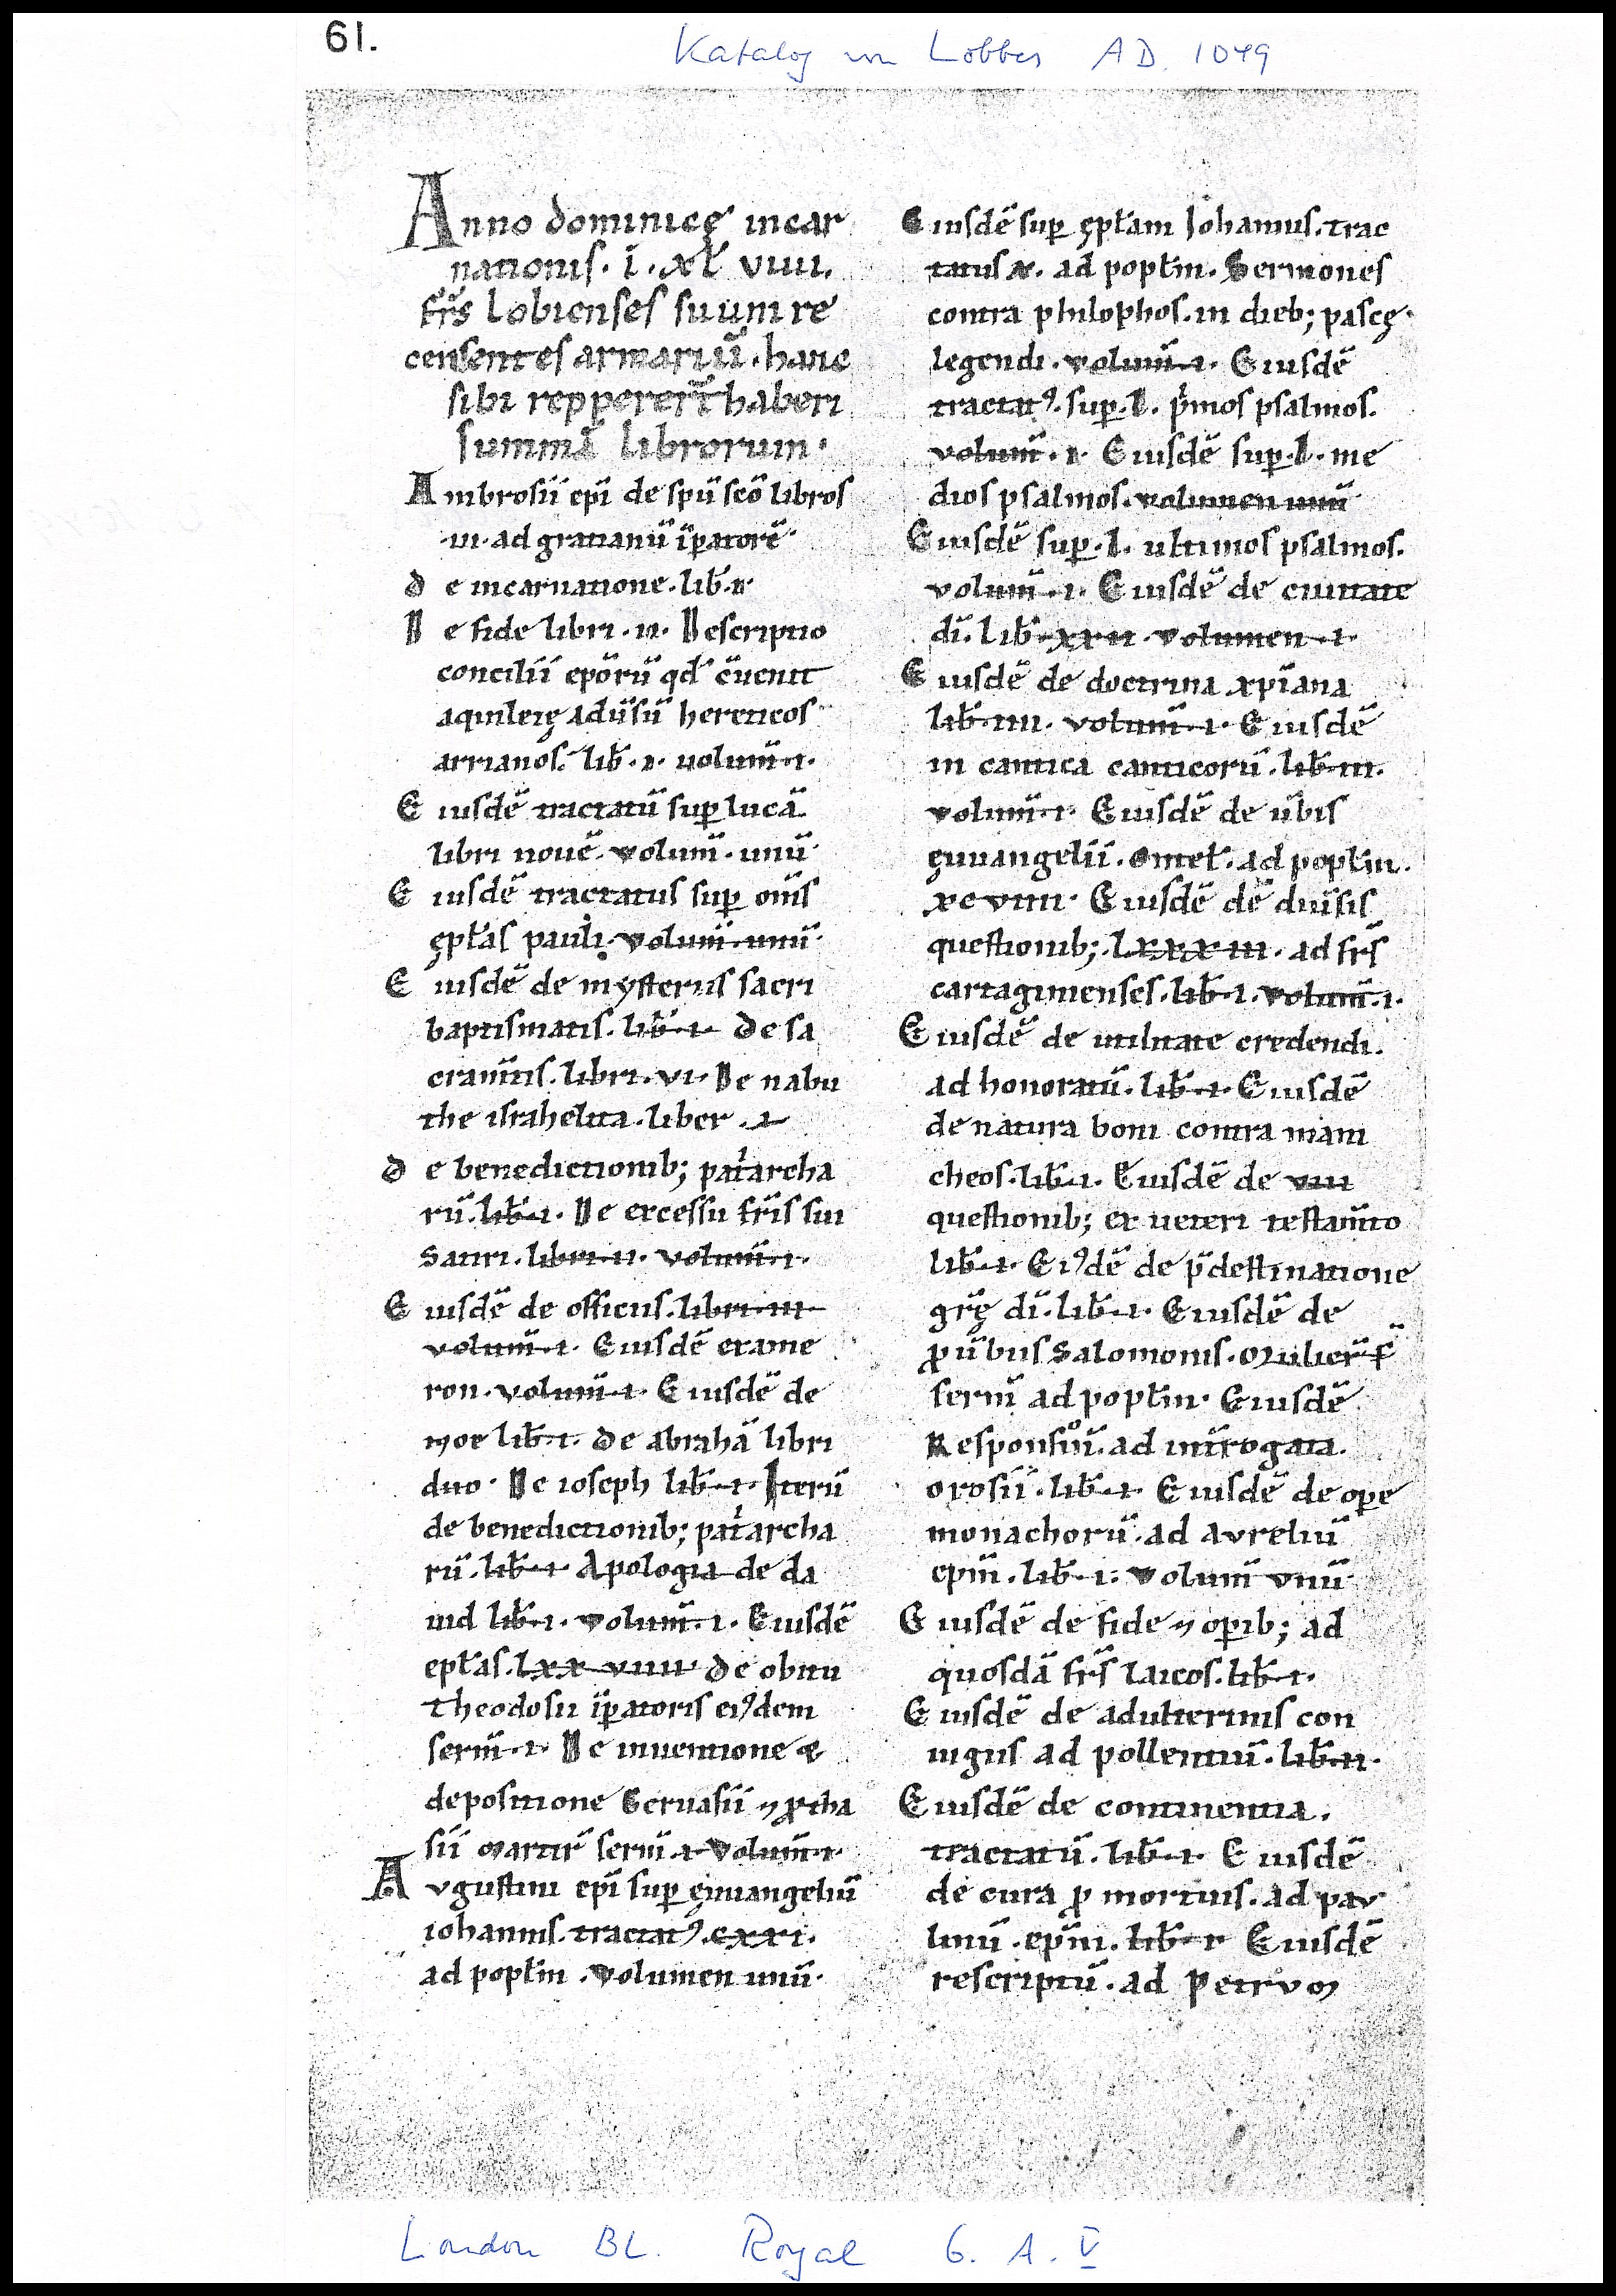 61.
Katalog von Lobbes AD. 1049
Anno dominicę incar
nationis · ī · xl viiii.
fr̄s lobienses suum re
censentes armariū · hanc
sibi repperert̄ haberi
summā librorum ·
Ambrosii ep̄i de sp̄u sc̄o libros
· iii · ad gratianū īp̄atorē ·
de incarnatione · lib̄ · i ·
De fide libri · ii · Descriptio
concilii ep̄orū qd̄ c̄uenit
aquileię adūsū hereticos
arrianos · lib̄ · i · uolum̄ · i ·
Eiusdē tractatū sup̄ lucā
libri nouē · volum̄ · unū ·
Eiusdē tractatus sup̄ om̄s
ępt̄as pauli · volum̄ · unū ·
Eiusdē de mysteriis sacri
baptismatis · lib̄ · i · de sa
cram̄tis · libri · vi · De nabu
the israhelita · liber · i
de benedictionib; pat̍archa
rū · lib̄ · i · De excessu fr̄is sui
satiri · libri · ii · volum̄ · i ·
Eiusdē de officiis · libri · iii
volum̄ · i · Eiusdē exame
ron · volum̄ · i · Eiusdē de
noe lib̄ · i · de abrahā libri
duo · De ioseph lib̄ · i · Iterū
de benedictionib; pat̍archa
rū · lib̄ · i · Apologia de da
uid lib̄ · i · volum̄ · i · Eiusdē
ept̄as · lxx viiii · de obitu
Theodosii īp̄atoris eiꝰdem
serm̄ · i · De inuentione &
depositione Geruasii ⁊ ꝓtha
sii martir̄ serm̄ · i · Volum̄ · i
Avgustini ep̄i sup̄ ęuuangeliū
iohannis · tractatꝰ · cxxi ·
ad popl̄m · volumen unū ·
Eiusdē sup̄ ępt̄am Iohannis · trac
tatus x · ad popl̄m · Sermones
contra philophos · in dieb; pascę ·
legendi · volum̄ · i · Eiusdē
tractatꝰ · sup̄ · l · p̍mos psalmos ·
volum̄ · i · Eiusdē sup̄ · l · me
dios psalmos · volumen unū
Eiusdē sup̄ · l · ultimos psalmos ·
volum̄ · i · Eiusdē de ciuitate
dī · lib̄ · xxii · volumen · i ·
Eiusdē de doctrina xp̄iana
lib̄ · iiii · volum̄ · i · Eiusdē
in cantica canticorū · lib̄ · iii ·
volum̄ · i · Eiusdē de ūbis
ęuuangelii · Omel̄ · ad popl̄m ·
xc viiii · Eiusdē de diūsis
questionib; · lxxxiii · ad fr̄s
cartaginenses · lib̄ · i · volum̄ · i ·
Eiusdē de utilitate credendi ·
ad honoratū · lib̄ · i · Eiusdē
de natura boni contra mani
cheos · lib̄ · i · Eiusdē de viii
questionib; ex ueteri testam̄to
lib̄ · i · Eiꝰdē de p̄destinatione
gr̄ę dī · lib̄ · i · Eiusdē de
ꝓūbiis Salomonis · Mulier̄ f̄
serm̄ ad popl̄m · Eiusdē
Responsiōū · ad int̄rogata ·
orosii · lib̄ · i · Eiusdē de op̄e
monachorū · ad avreliū
ep̄m · lib̄ · i · volum̄ vnū
Eiusdē de fide ⁊ op̄ib; ad
quosdā fr̄s laicos · lib̄ · i ·
Eiusdē de adulterinis con
iugiis ad pollentiū · lib̄ · ii ·
Eiusdē de continentia ·
tractatū · lib̄ · i · Eiusdē
de cura ꝓ mortuis · ad pav
linū · ep̄m · lib̄ · i · Eiusdē
rescriptū · ad Petrvm
London BL. Royal 6. A. V